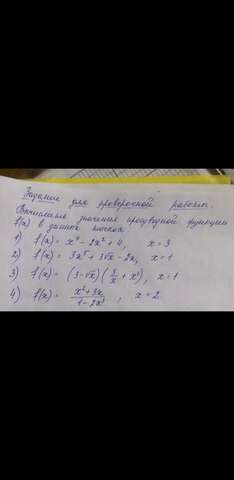 Задание для проверочной работы.
Вычислить значения производной функции
f(x) в данных точках
1) f(x) = x⁴ - 2x² + 4, x = 3
2) f(x) = 3x⁵ + 3√x - 2x, x = 1
3) f(x) = (3-√x)(3/x + x³), x = 1
4) f(x) = (x²+3x)/(1-2x³), x = 2